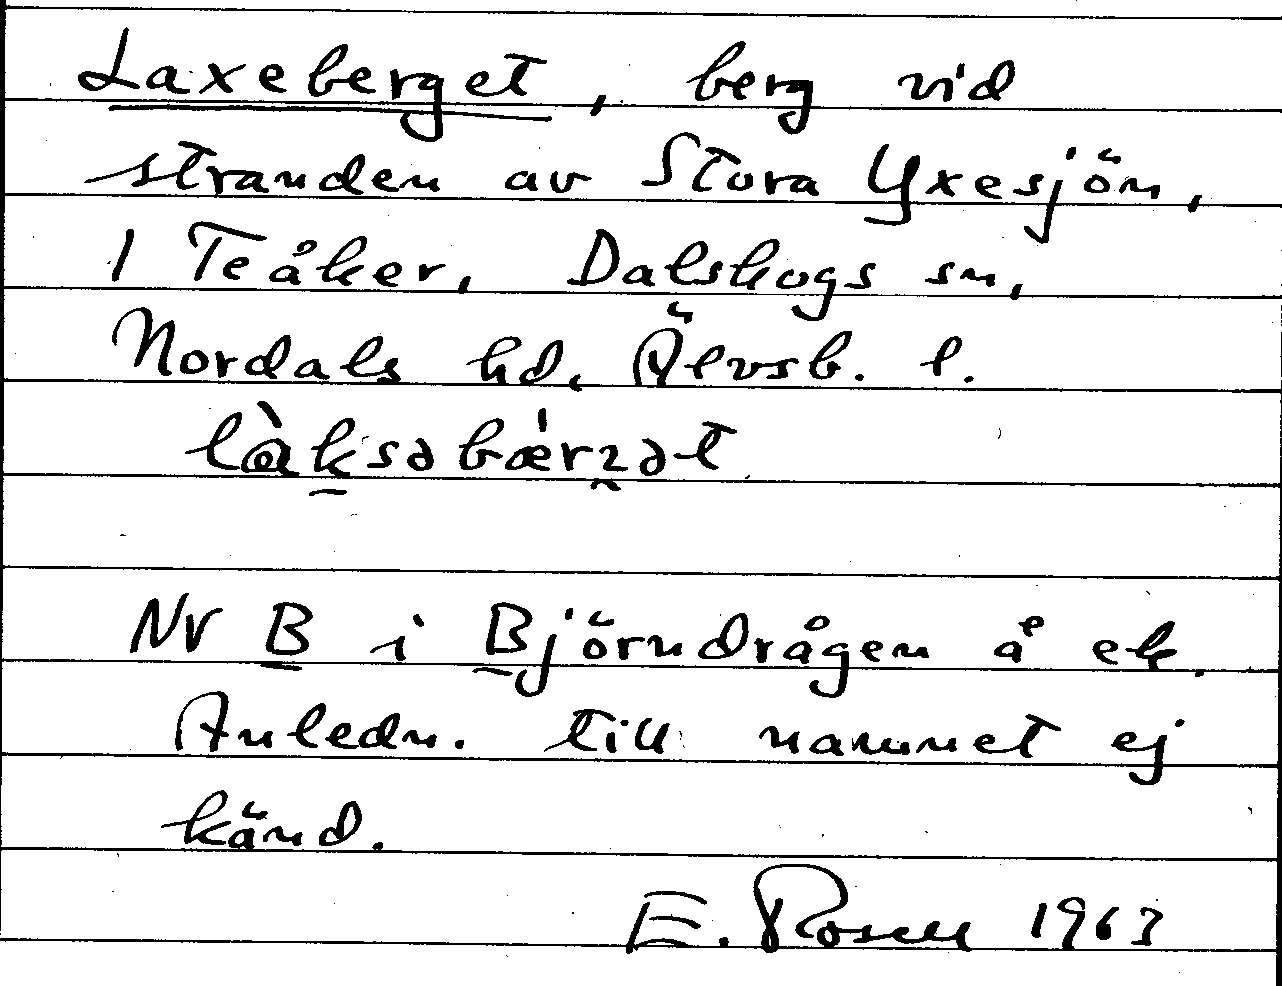 Laxeberget, berg vid
stranden av Stora Yxesjön,
1 Teåker, Dalskogs sn,
Nordals hd. Älvsb. l.
làksəbǽrʒət
NV B i Björndrågen å ek.
Anledn. till namnet ej
känd.
E. Rosell 1963